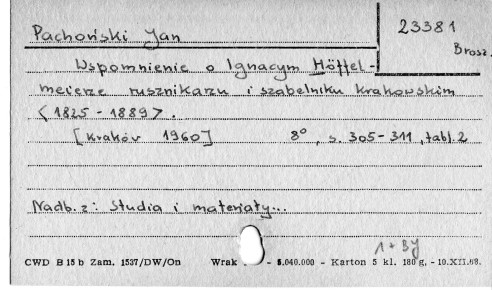 23381
Brosz.
Pachoński Jan
Wspomnienie o Ignacym Höffel-
meierze rusznikarzu i szabelniku krakowskim
<1825-1889>.
[Kraków 1960] 8°, s. 305-311, tabl. 2
Nadb. z: Studia i materiały...
1 + BJ
CWD B 15 b Zam. 1537/DW/On Wrak - 5.040.000 - Karton 5 kl. 180 g, - 10.XII.68.